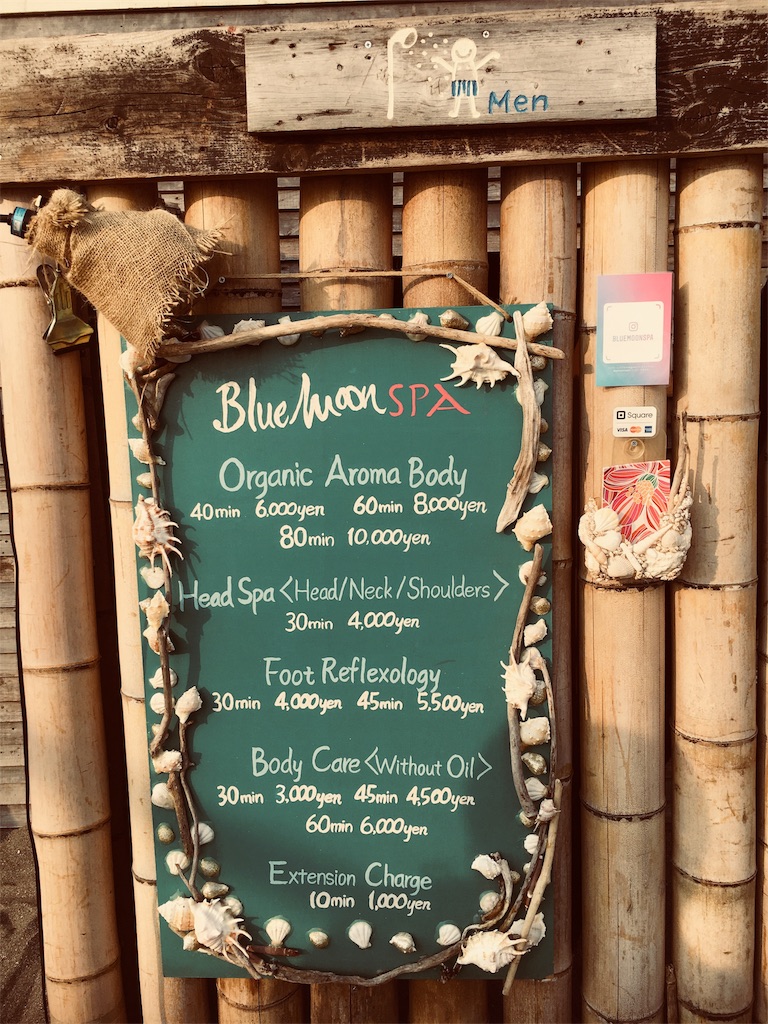 Men
Blue Moon SPA
Organic Aroma Body
40min 6,000yen 60min 8,000yen
80min 10,000yen
Head Spa <Head/Neck/Shoulders>
30min 4,000yen
Foot Reflexology
30min 4,000yen 45min 5,500yen
Body Care <Without Oil>
30min 3,000yen 45min 4,500yen
60min 6,000yen
Extension Charge
10min 1,000yen
BLUEMOONSPA
Square
VISA